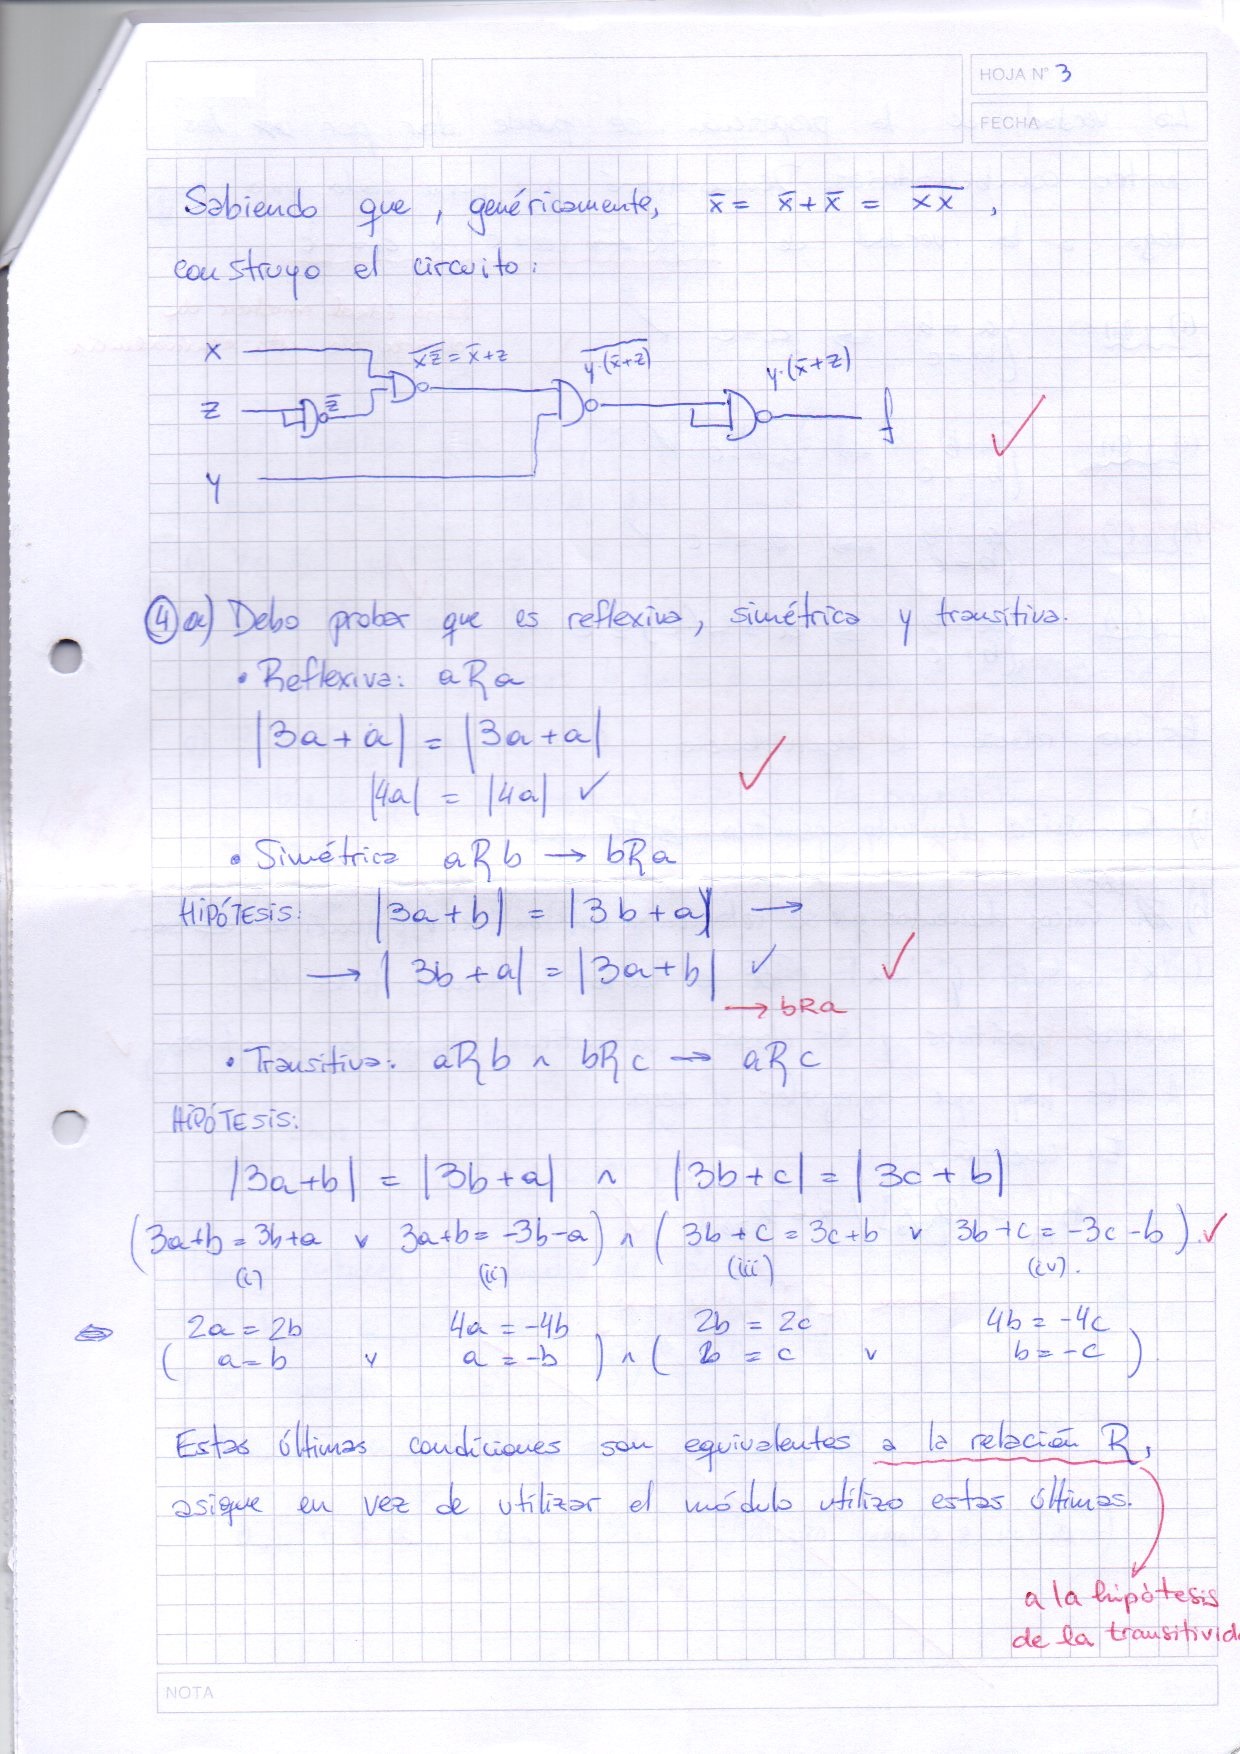 HOJA N° 3
FECHA
Sabiendo que, genéricamente, x̅ = x̅ + x̅ = \overline{x x},
construyo el circuito:
x \overline{x z̅} = x̅ + z \overline{y·(x̅+z)} y·(x̅+z)
z z̅ f
y
④ a) Debo probar que es reflexiva, simétrica y transitiva.
• Reflexiva: aRa
|3a + a| = |3a + a|
|4a| = |4a| ✓
• Simétrica aRb → bRa
HIPÓTESIS: |3a + b| = |3b + a| →
→ |3b + a| = |3a + b| ✓
→ bRa
• Transitiva: aRb ∧ bRc → aRc
HIPÓTESIS:
|3a+b| = |3b+a| ∧ |3b+c| = |3c+b|
(3a+b = 3b+a ∨ 3a+b = -3b-a) ∧ (3b+c = 3c+b ∨ 3b+c = -3c-b).
(i) (ii) (iii) (iv).
2a = 2b 4a = -4b 2b = 2c 4b = -4c
( a = b ∨ a = -b ) ∧ ( b = c ∨ b = -c ).
Estas últimas condiciones son equivalentes a la relación R,
asique en vez de utilizar el módulo utilizo estas últimas.
a la hipótesis
de la transitivid
NOTA